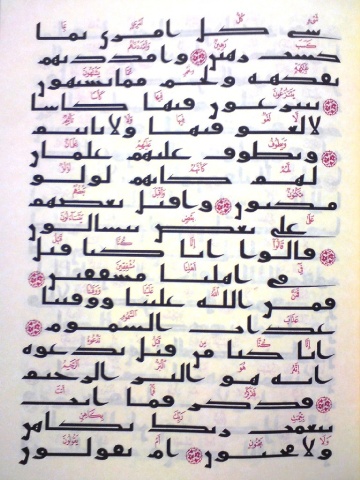 شى كل امرى بما
كسب رهين وامددنهم
بفكهه ولحم مما يشتهون
يتنزعون فيها كاسا
لا لغو فيها ولا تاثيم
ويطوف عليهم غلمان
لهم كانهم لولو
مكنون واقبل بعضهم
على بعض يتسالون
قالوا انا كنا قبل
في اهلنا مشفقين
فمن الله علينا ووقنا
عذاب السموم
انا كنا من قبل ندعوه
انه هو البر الرحيم
فذكر فما انت
بنعمت ربك بكاهن
ولا مجنون ام يقولون